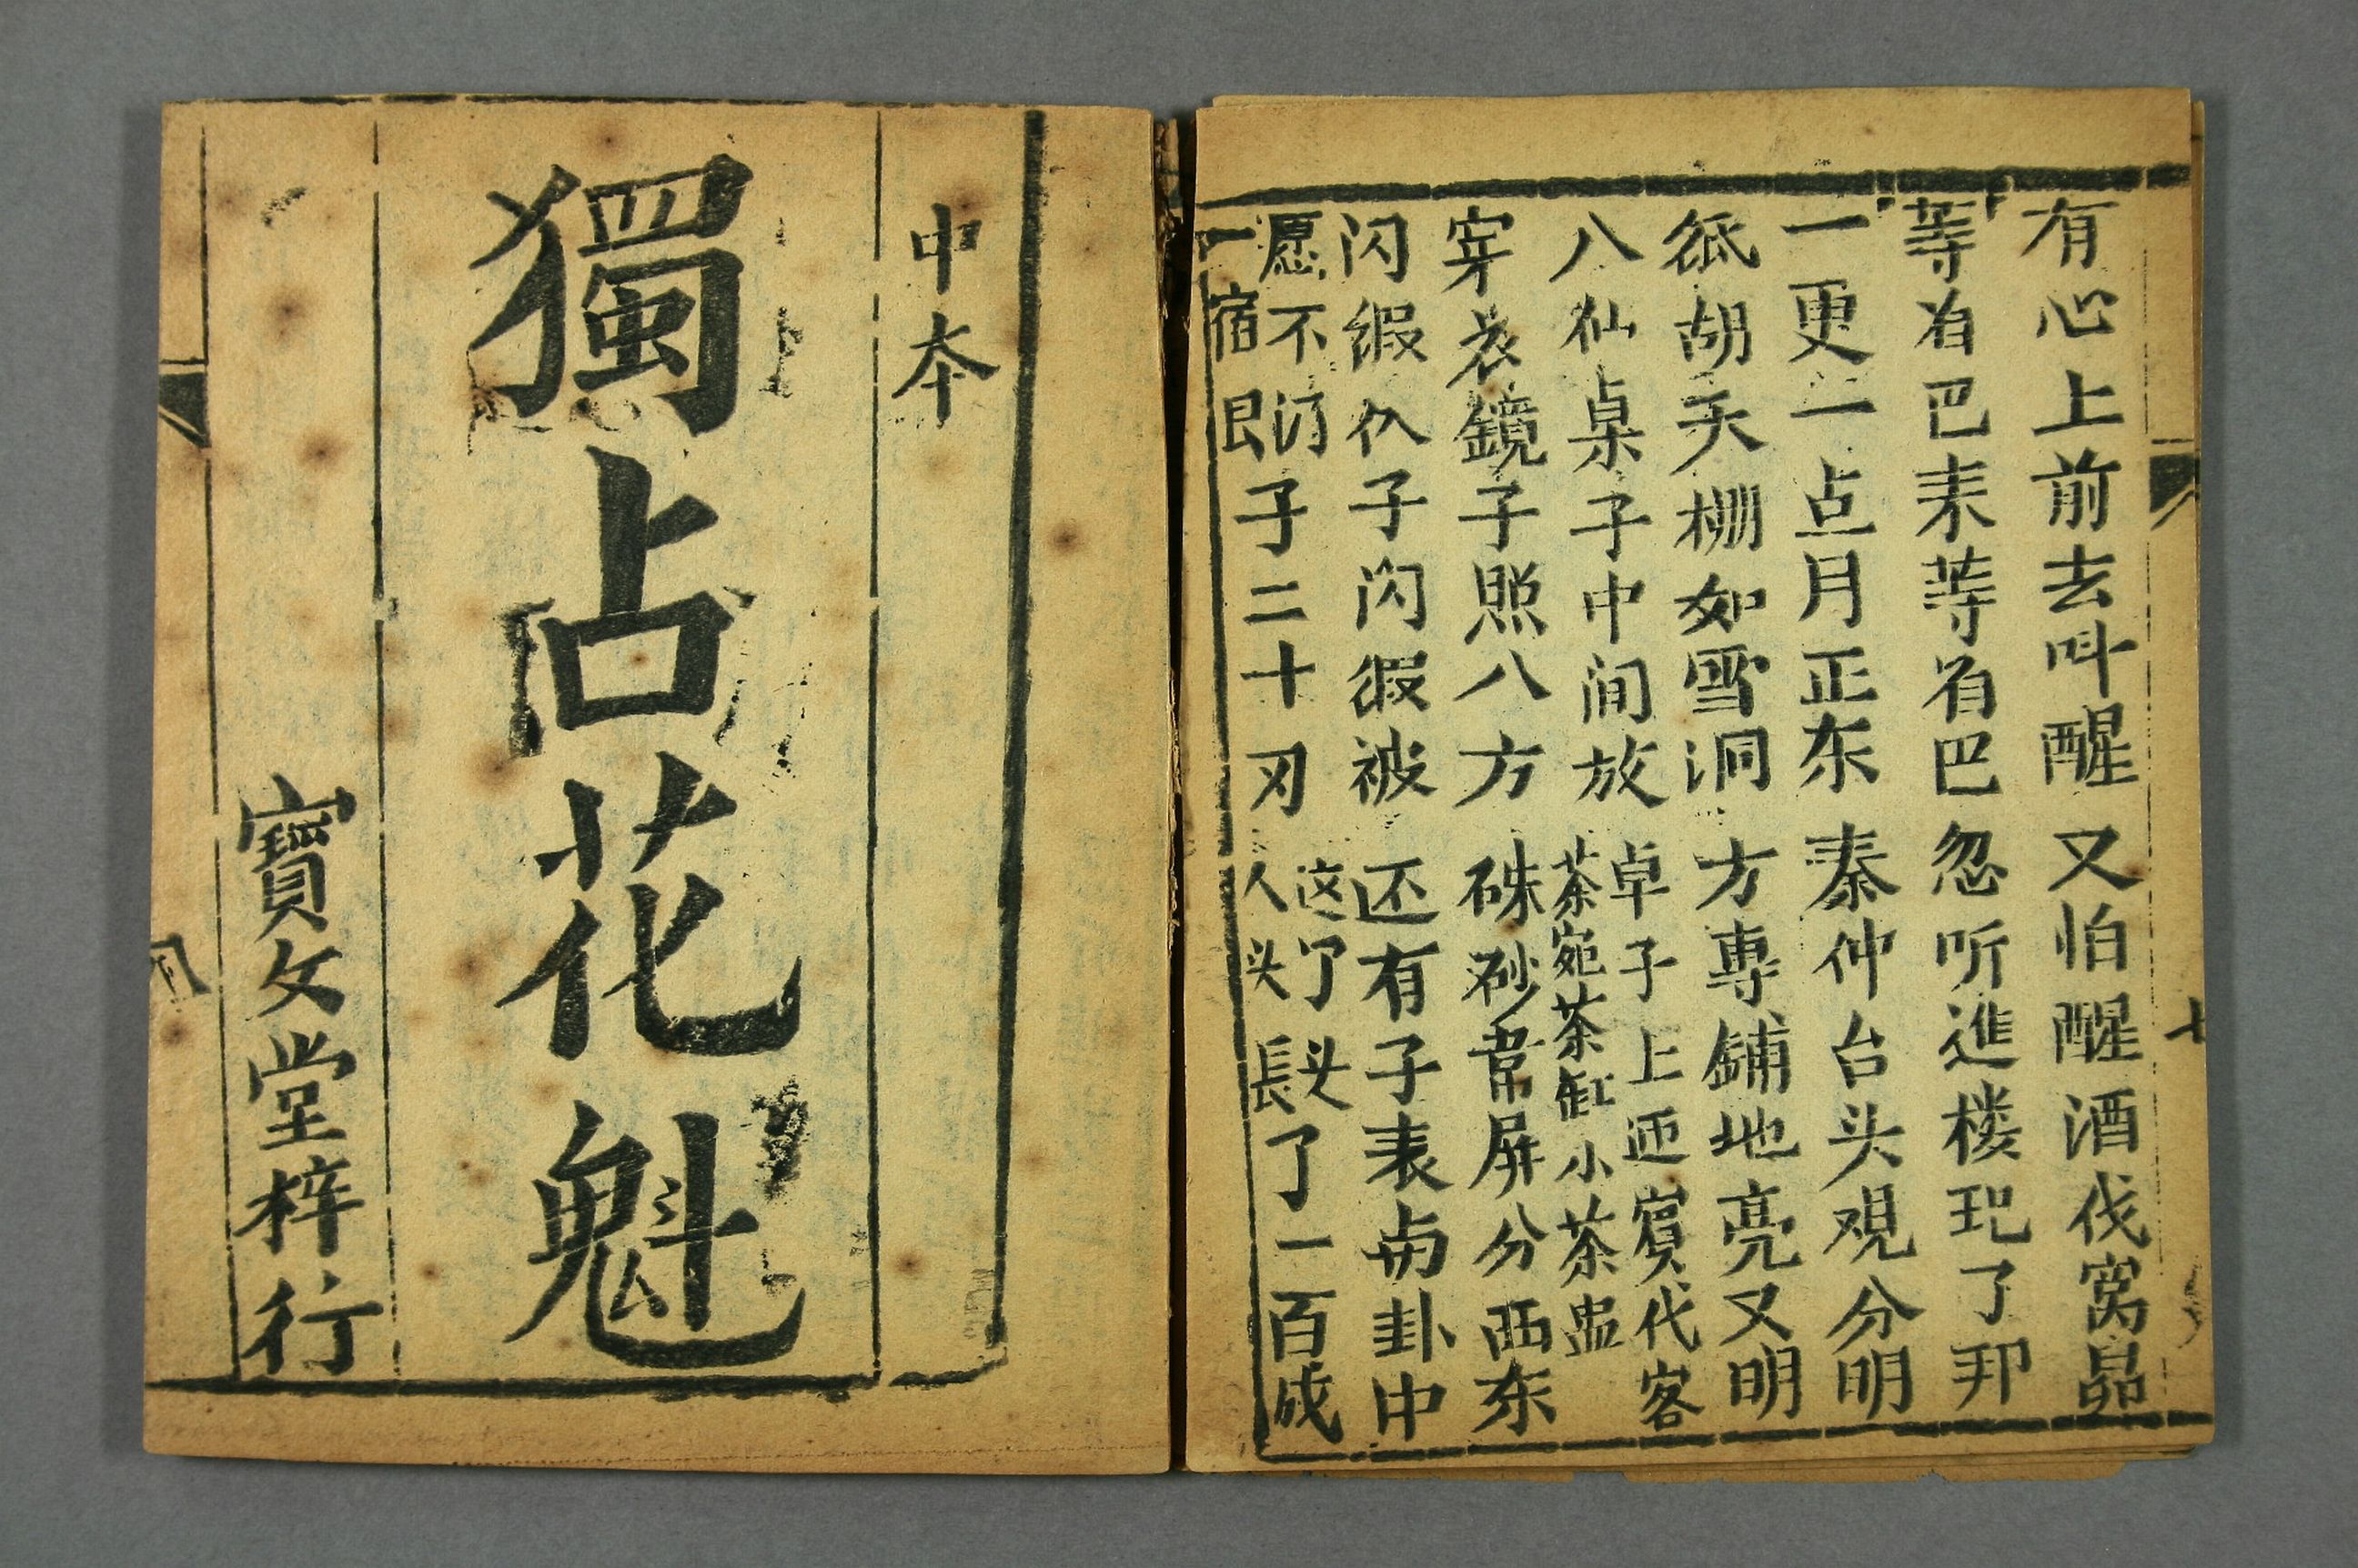 有心上前去呌醒又怕醒酒伐窝晶
等着巴耒等着巴忽听進楼玘了邦
一更一点月正东秦仲台头覌分明
纸胡天棚如雪洞方專鋪地亮又明
八仙桌子中间放卓子上迊賔代客
茶宛茶缸小茶盅
穿衣鏡子照八方硃砂常屏分西东
闪缎仈子闪缎被还有子表卐卦中
愿不
一宿艮子二十刃这了头
人头長了一百成
七
中本
獨占花魁
寶文堂梓行